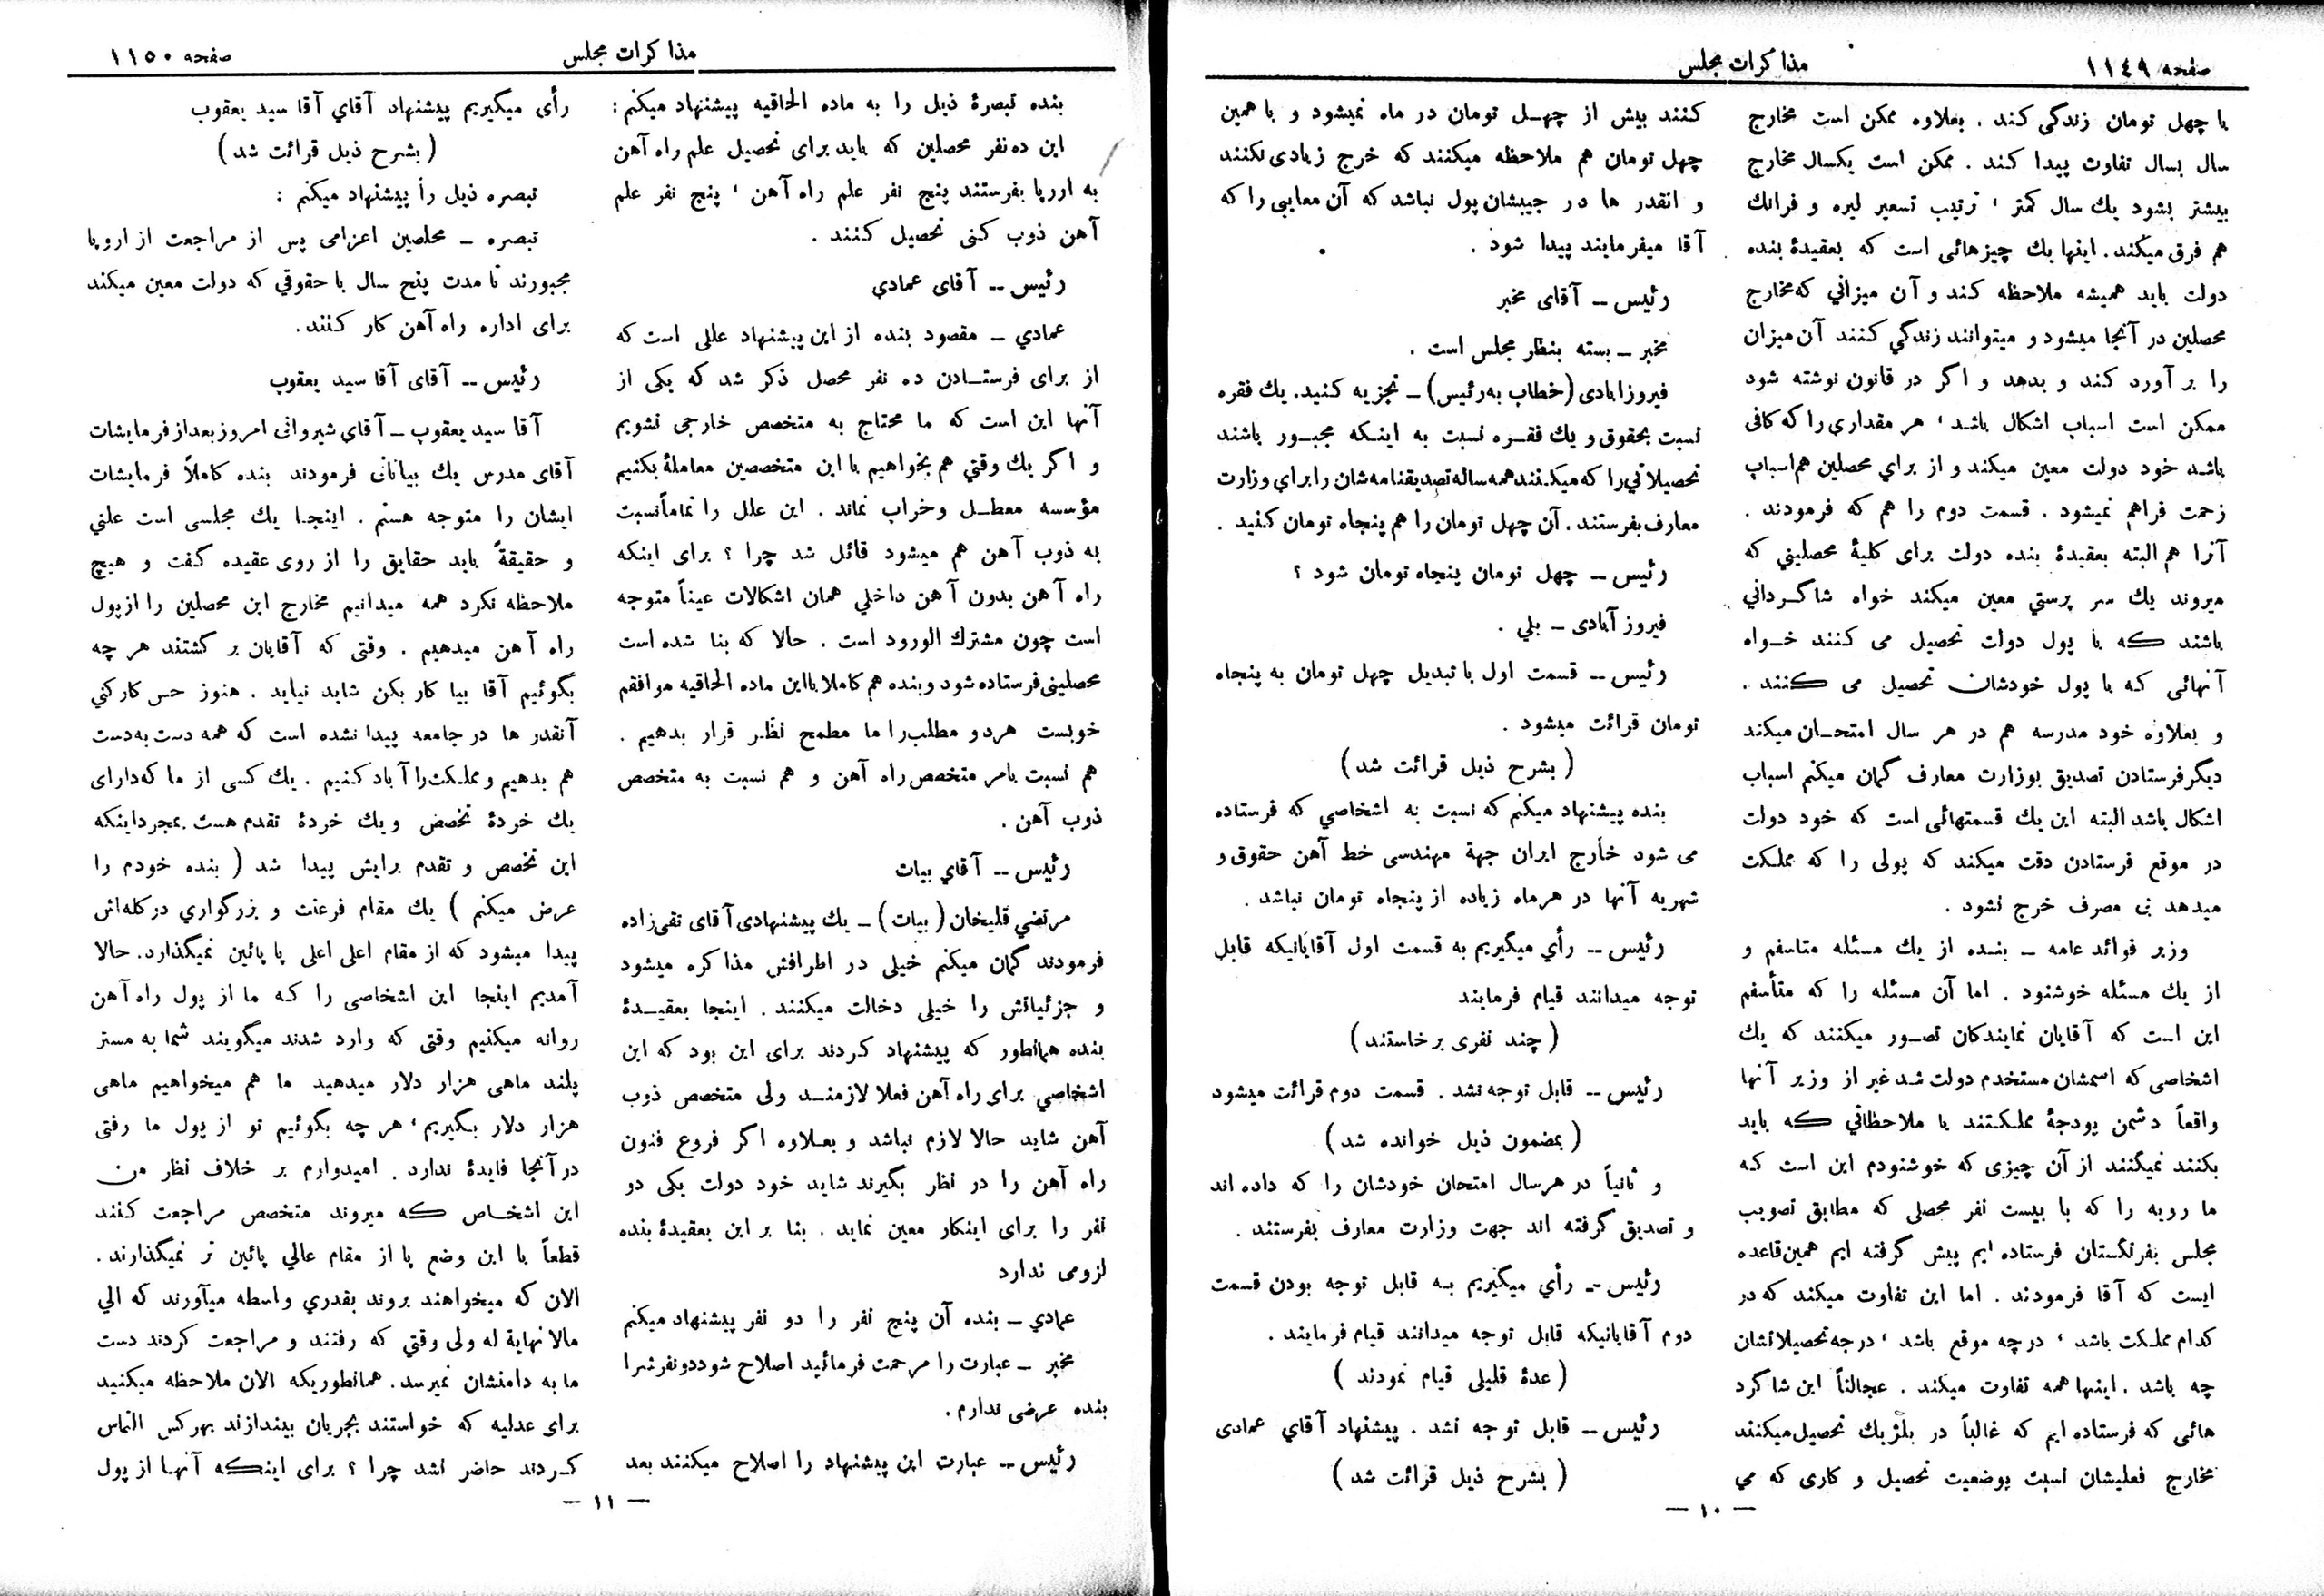 صفحه ۱۱٤۹
مذاکرات مجلس
با چهل تومان زندگی کند . بعلاوه ممکن است مخارج
سال بسال تفاوت پیدا کند . ممکن است یکسال مخارج
بیشتر بشود یك سال کمتر ، ترتیب تسعیر لیره و فرانك
هم فرق میکند . اینها یك چیزهائی است که بعقیدهٔ بنده
دولت باید همیشه ملاحظه کند و آن میزانی که مخارج
محصلین در آنجا میشود و میتوانند زندگي کنند آن میزان
را بر آورد کند و بدهد و اگر در قانون نوشته شود
ممکن است اسباب اشکال باشد ، هر مقداری را که کافی
باشد خود دولت معین میکند و از براي محصلین هم اسباب
زحمت فراهم نمیشود . قسمت دوم را هم که فرمودند .
آنرا هم البته بعقیدهٔ بنده دولت برای کلیهٔ محصلینی که
میروند یك سر پرستي معین میکند خواه شاگردانی
باشند که با پول دولت تحصیل می کنند خواه
آنهائی که با پول خودشان تحصیل می کنند .
و بعلاوه خود مدرسه هم در هر سال امتحان میکند
دیگر فرستادن تصدیق بوزارت معارف گمان میکنم اسباب
اشکال باشد البته این یك قسمتهائی است که خود دولت
در موقع فرستادن دقت میکند که پولی را که مملکت
میدهد بی مصرف خرج نشود .
وزیر فوائد عامه ــ بنده از یك مسئله متاسفم و
از یك مسئله خوشنود . اما آن مسئله را که متأسفم
این است که آقایان نمایندکان تصور میکنند که یك
اشخاصی که اسمشان مستخدم دولت شد غیر از وزیر آنها
واقعاً دشمن بودجهٔ مملکتند یا ملاحظاتی که باید
بکنند نمیکنند از آن چیزی که خوشنودم این است که
ما رویه را که با بیست نفر محصلی که مطابق تصویب
مجلس بفرنگستان فرستاده ایم پیش گرفته ایم همین قاعده
ایست که آقا فرمودند . اما این تفاوت میکند که در
کدام مملکت باشد ، در چه موقع باشد ، درجه تحصیلاتشان
چه باشد . اینها همه تفاوت میکند . عجالتاً این شاگرد
هائی که فرستاده ایم که غالباً در بلژیك تحصیل میکنند
مخارج فعلیشان نسبت بوضعیت تحصیل و کاری که می
کنند بیش از چهل تومان در ماه نمیشود و با همین
چهل تومان هم ملاحظه میکنند که خرج زیادی نکنند
و انقدر ها در جیبشان پول نباشد که آن معایبی را که
آقا میفرمایند پیدا شود .
رئیس ــ آقای مخبر
مخبر ــ بسته بنظر مجلس است .
فیروزابادی (خطاب به رئیس) ــ تجزیه کنید . یك فقره
نسبت بحقوق و یك فقره نسبت به اینکه مجبور باشند
تحصیلاتي را که میکنند همه ساله تصدیقنامه شان را براي وزارت
معارف بفرستند . آن چهل تومان را هم پنجاه تومان کنید .
رئیس ــ چهل تومان پنجاه تومان شود ؟
فیروز آبادی ــ بلي .
رئیس ــ قسمت اول با تبدیل چهل تومان به پنجاه
تومان قرائت میشود .
( بشرح ذیل قرائت شد )
بنده پیشنهاد میکنم که نسبت به اشخاصي که فرستاده
می شود خارج ایران جهة مهندسی خط آهن حقوق و
شهریه آنها در هرماه زیاده از پنجاه تومان نباشد .
رئیس ــ رأي میگیریم به قسمت اول آقایانیکه قابل
توجه میدانند قیام فرمایند
( چند نفری برخاستند )
رئیس ــ قابل توجه نشد . قسمت دوم قرائت میشود
( بمضمون ذیل خوانده شد )
و ثانیاً در هرسال امتحان خودشان را که داده اند
و تصدیق گرفته اند جهت وزارت معارف بفرستند .
رئیس ــ رأي میگیریم به قابل توجه بودن قسمت
دوم آقایانیکه قابل توجه میدانند قیام فرمایند .
( عدهٔ قلیلی قیام نمودند )
رئیس ــ قابل توجه نشد . پیشنهاد آقاي عمادی
( بشرح ذیل قرائت شد )
— ۱۰ —
مذاکرات مجلس
صفحه ۱۱۵۰
بنده تبصرهٔ ذیل را به ماده الحاقیه پیشنهاد میکنم :
این ده نفر محصلین که باید برای تحصیل علم راه آهن
به اروپا بفرستند پنج نفر علم راه آهن ، پنج نفر علم
آهن ذوب کنی تحصیل کنند .
رئیس ــ آقای عمادي
عمادي ــ مقصود بنده از این پیشنهاد عللی است که
از برای فرستادن ده نفر محصل ذکر شد که یکی از
آنها این است که ما محتاج به متخصص خارجی نشویم
و اگر یك وقتي هم بخواهیم با این متخصصین معاملهٔ بکنیم
مؤسسه معطل و خراب نماند . این علل را تماماً نسبت
به ذوب آهن هم میشود قائل شد چرا ؟ برای اینکه
راه آهن بدون آهن داخلي همان اشکالات عیناً متوجه
است چون مشترك الورود است . حالا که بنا شده است
محصلینی فرستاده شود و بنده هم کاملا با این ماده الحاقیه موافقم
خوبست هردو مطلب را ما مطمح نظر قرار بدهیم .
هم نسبت بامر متخصص راه آهن و هم نسبت به متخصص
ذوب آهن .
رئیس ــ آقاي بیات
مرتضي قلیخان ( بیات ) ــ یك پیشنهادی آقای تقی زاده
فرمودند گمان میکنم خیلی در اطرافش مذاکره میشود
و جزئیاتش را خیلی دخالت میکنند . اینجا بعقیدهٔ
بنده همانطور که پیشنهاد کردند برای این بود که این
اشخاصي برای راه آهن فعلا لازمند ولی متخصص ذوب
آهن شاید حالا لازم نباشد و بعلاوه اگر فروع فنون
راه آهن را در نظر بگیرند شاید خود دولت یکی دو
نفر را برای اینکار معین نماید . بنا بر این بعقیدهٔ بنده
لزومی ندارد
عمادي ــ بنده آن پنج نفر را دو نفر پیشنهاد میکنم
مخبر ــ عبارت را مرحمت فرمائید اصلاح شود دو نفرش را
بنده عرضی ندارم .
رئیس ــ عبارت این پیشنهاد را اصلاح میکنند بعد
رأی میگیریم پیشنهاد آقاي آقا سید یعقوب
( بشرح ذیل قرائت شد )
تبصره ذیل را پیشنهاد میکنم :
تبصره ــ محلصین اعزامی پس از مراجعت از اروپا
مجبورند تا مدت پنج سال با حقوقي که دولت معین میکند
برای اداره راه آهن کار کنند .
رئیس ــ آقای آقا سید یعقوب
آقا سید یعقوب ــ آقاي شیروانی امروز بعد از فرمایشات
آقای مدرس یك بیاناتی فرمودند بنده کاملاً فرمایشات
ایشان را متوجه هستم . اینجا یك مجلسی است علني
و حقیقةً باید حقایق را از روی عقیده گفت و هیچ
ملاحظه نکرد همه میدانیم مخارج این محصلین را از پول
راه آهن میدهیم . وقتی که آقایان بر گشتند هر چه
بگوئیم آقا بیا کار بکن شاید نیاید . هنوز حس کارکني
آنقدر ها در جامعه پیدا نشده است که همه دست به دست
هم بدهیم و مملکت را آباد کنیم . یك کسی از ما که دارای
یك خردهٔ تخصص و یك خردهٔ تقدم هست بمجرد اینکه
این تخصص و تقدم برایش پیدا شد ( بنده خودم را
عرض میکنم ) یك مقام فرعنت و بزرگواري در کله اش
پیدا میشود که از مقام اعلی اعلی پا پائین نمیگذارد . حالا
آمدیم اینجا این اشخاصی را که ما از پول راه آهن
روانه میکنیم وقتی که وارد شدند میگویند شما به مستر
پلند ماهی هزار دلار میدهید ما هم میخواهیم ماهی
هزار دلار بگیریم ، هر چه بگوئیم تو از پول ما رفتی
در آنجا فایدهٔ ندارد . امیدوارم بر خلاف نظر من
این اشخاص که میروند متخصص مراجعت کنند
قطعاً با این وضع پا از مقام عالي پائین تر نمیگذارند .
الان که میخواهند بروند بقدري واسطه میآورند که الي
مالا نهایة له ولی وقتي که رفتند و مراجعت کردند دست
ما به دامنشان نمیرسد . همانطوریکه الان ملاحظه میکنید
برای عدلیه که خواستند بجریان بیندازند بهرکس التماس
کردند حاضر نشد چرا ؟ برای اینکه آنها از پول
— ۱۱ —